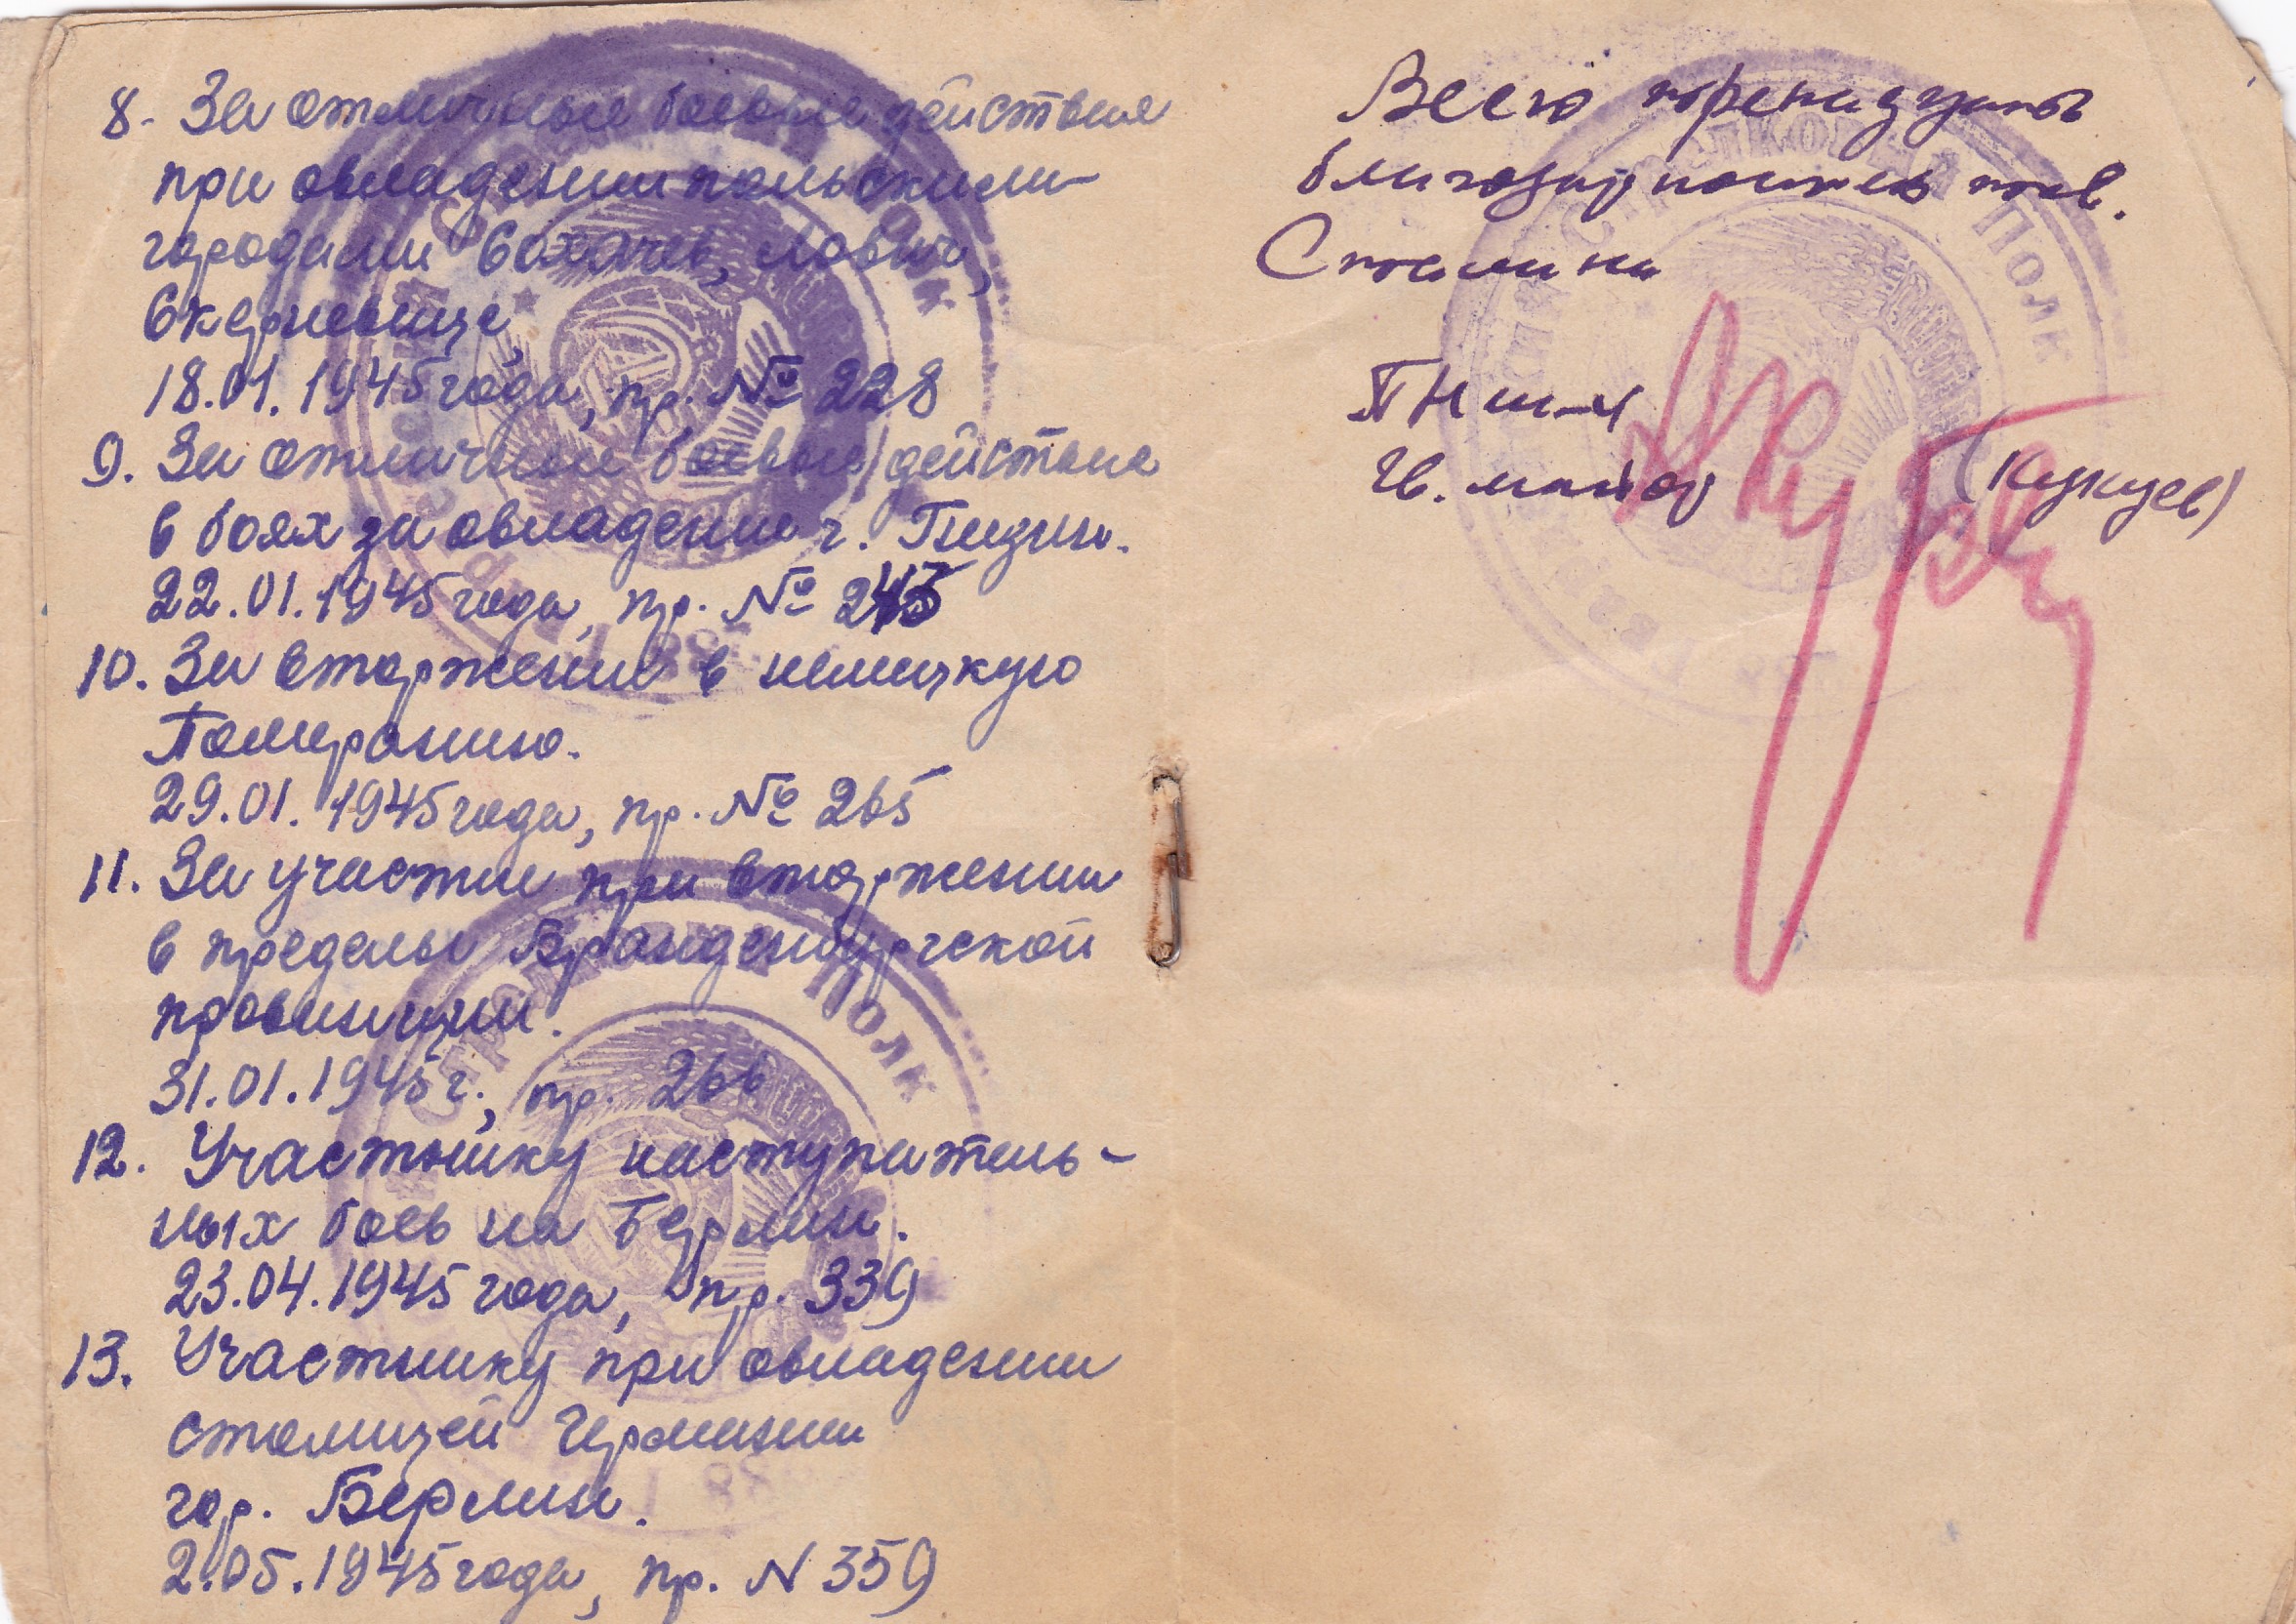 8. За отличные боевые действия
при овладении польскими
городами Сохачев, Лович,
Скерневице,
18.01.1945 года, пр. № 228
9. За отличные боевые действия
в боях за овладение г. Гнезно.
22.01.1945 года, пр. № 245
10. За вторжение в немецкую
Померанию.
29.01.1945 года, пр. № 265
11. За участие при вторжении
в пределы Бранденбургской
провинции.
31.01.1945 г., пр. 266
12. Участнику наступатель-
ных боев на Берлин.
23.04.1945 года, пр. 339
13. Участнику при овладении
столицей Германии
гор. Берлин.
2.05.1945 года, пр. N 359
Всего
благодарностей тов.
Сталина
ПНШ-4
Гв. майор (Кукуев)
Стрелковый Полк
Стрелковый Полк
Стрелковый Полк